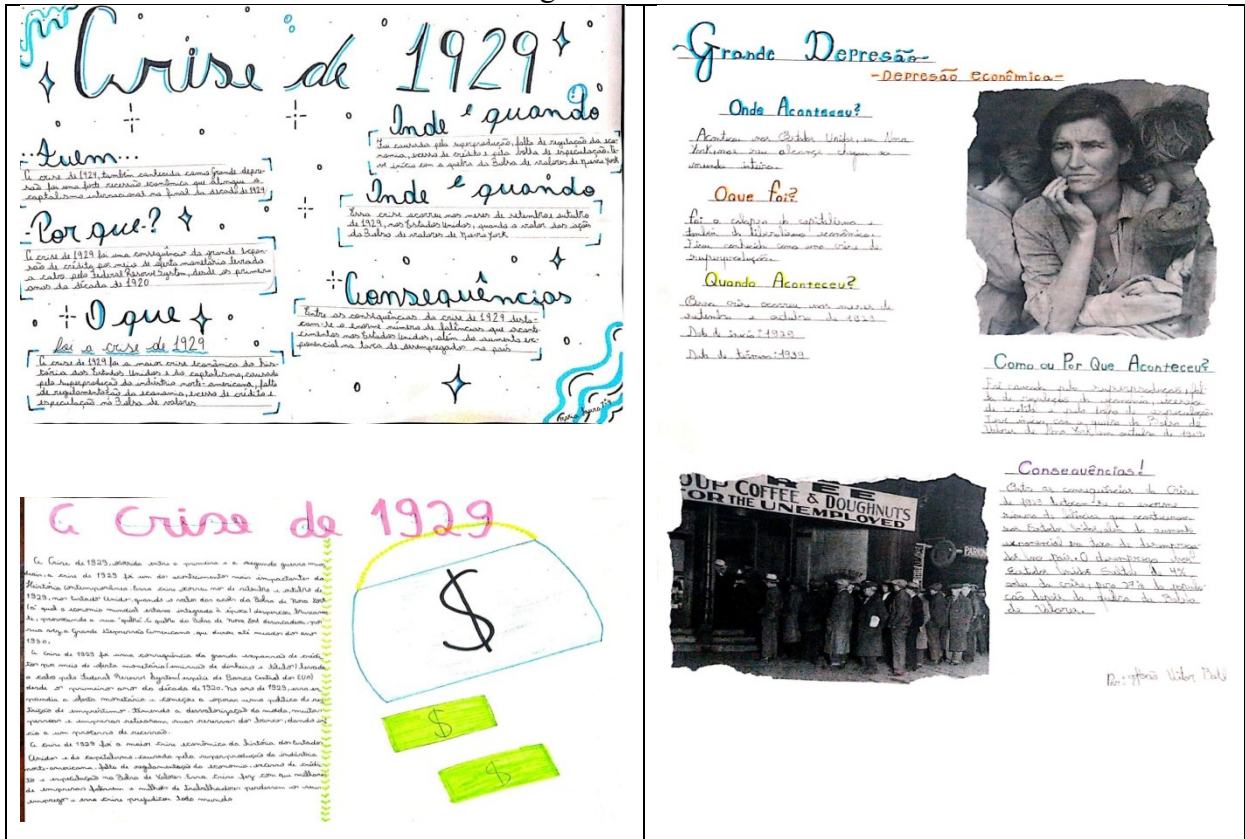 Crise de 1929
Quem...
A crise de 1929, também conhecida como Grande depres-
são foi uma forte recessão econômica que atingiu o
capitalismo internacional no final da década de 1929
Por que?
A crise de 1929 foi uma consequência da grande expan-
são de crédito por meio de oferta monetária levada
a cabo pelo Federal Reserve System, desde os primeiros
anos da década de 1920
O que
foi a crise de 1929
A crise de 1929 foi a maior crise econômica da his-
tória dos Estados Unidos e do capitalismo, causada
pela superprodução da indústria norte-americana, falta
de regulamentação da economia, excesso de crédito e
especulação na Bolsa de valores
Onde e quando
Foi causada pela superprodução, falta de regulação da eco-
nomia, excesso de crédito e pela bolha de especulação, te-
ve início com a quebra da Bolsa de valores de Nova York
Onde e quando
Essa crise ocorreu nos meses de setembro e outubro
de 1929, nos Estados Unidos, quando o valor das ações
da Bolsa de valores de Nova York
Consequências
Entre as consequências da crise de 1929 desta-
cam-se o enorme número de falências que aconte-
cimentos nos Estados Unidos, além do aumento ex-
ponencial na taxa de desempregados no país
A Crise de 1929
A Crise de 1929, ocorrida entre a primeira e a segunda guerra mun-
diais, a crise de 1929 foi um dos acontecimentos mais impactantes da
História contemporânea. Essa crise ocorreu de setembro e outubro de
1929, nos Estados Unidos, quando o valor das ações da Bolsa de Nova York
(a qual a economia mundial estava integrada à época) despencou bruscamen-
te, provocando a sua "quebra". A quebra da Bolsa de Nova York desencadeou, por
sua vez, a Grande Depressão Americana, que durou até meados dos anos
1930.
A Crise de 1929 foi uma consequência da grande expansão de crédi-
tos por meio de oferta monetária (emissão de dinheiro e títulos) levada
a cabo pelo Federal Reserve System (espécie de Banco Central dos EUA)
desde os primeiros anos da década de 1920. No ano de 1929,
a oferta monetária e começou a operar uma política de res-
trição de empréstimo. Temendo a desvalorização da moeda, muitas
pessoas e empresas retiraram suas reservas dos bancos, dando iní
cio a um processo de recessão.
A crise de 1929 foi a maior crise econômica da história dos Estados
Unidos e do capitalismo, causada pela superprodução da indústria
norte-americana, falta de regulamentação da economia, excesso de crédi-
to e especulação na Bolsa de Valores. Essa crise fez com que milhares
de empresas falissem e milhões de trabalhadores perdessem os seus
empregos e essa crise prejudicou todo mundo
$
$
$
Grande Depresão
-Depresão econômica-
Onde Aconteceu?
Aconteceu nos Estados Unidos, em Nova
York, mas seu alcance chegou ao
mundo inteiro.
Oque foi?
Foi o colapso do capitalismo e
também do liberalismo econômico.
Ficou conhecida como uma crise de
superprodução.
Quando Aconteceu?
Essa crise ocorreu nos meses de
setembro e outubro de 1929
Data de início: 1929
Data de término: 1939
Como ou Por Que Aconteceu?
Foi causada pela superprodução, fal-
ta de regulação da economia, excesso
de crédito e pela bolha de especulação.
Teve início com a quebra da Bolsa de
Valores de Nova York em outubro de 1929
Consequências!
Entre as consequências da Crise
de 1929 o enorme
número de falências que aconteceram
nos Estados Unidos, além do aumento
exponencial na taxa de desemprega-
dos no país. O desemprego nos
Estados Unidos saltou de 4%
antes da crise, para 27% da popula-
ção depois da quebra da Bolsa
de Valores.
FREE
SOUP COFFEE & DOUGHNUTS
FOR THE UNEMPLOYED
PARKIN
Por: João Vitor